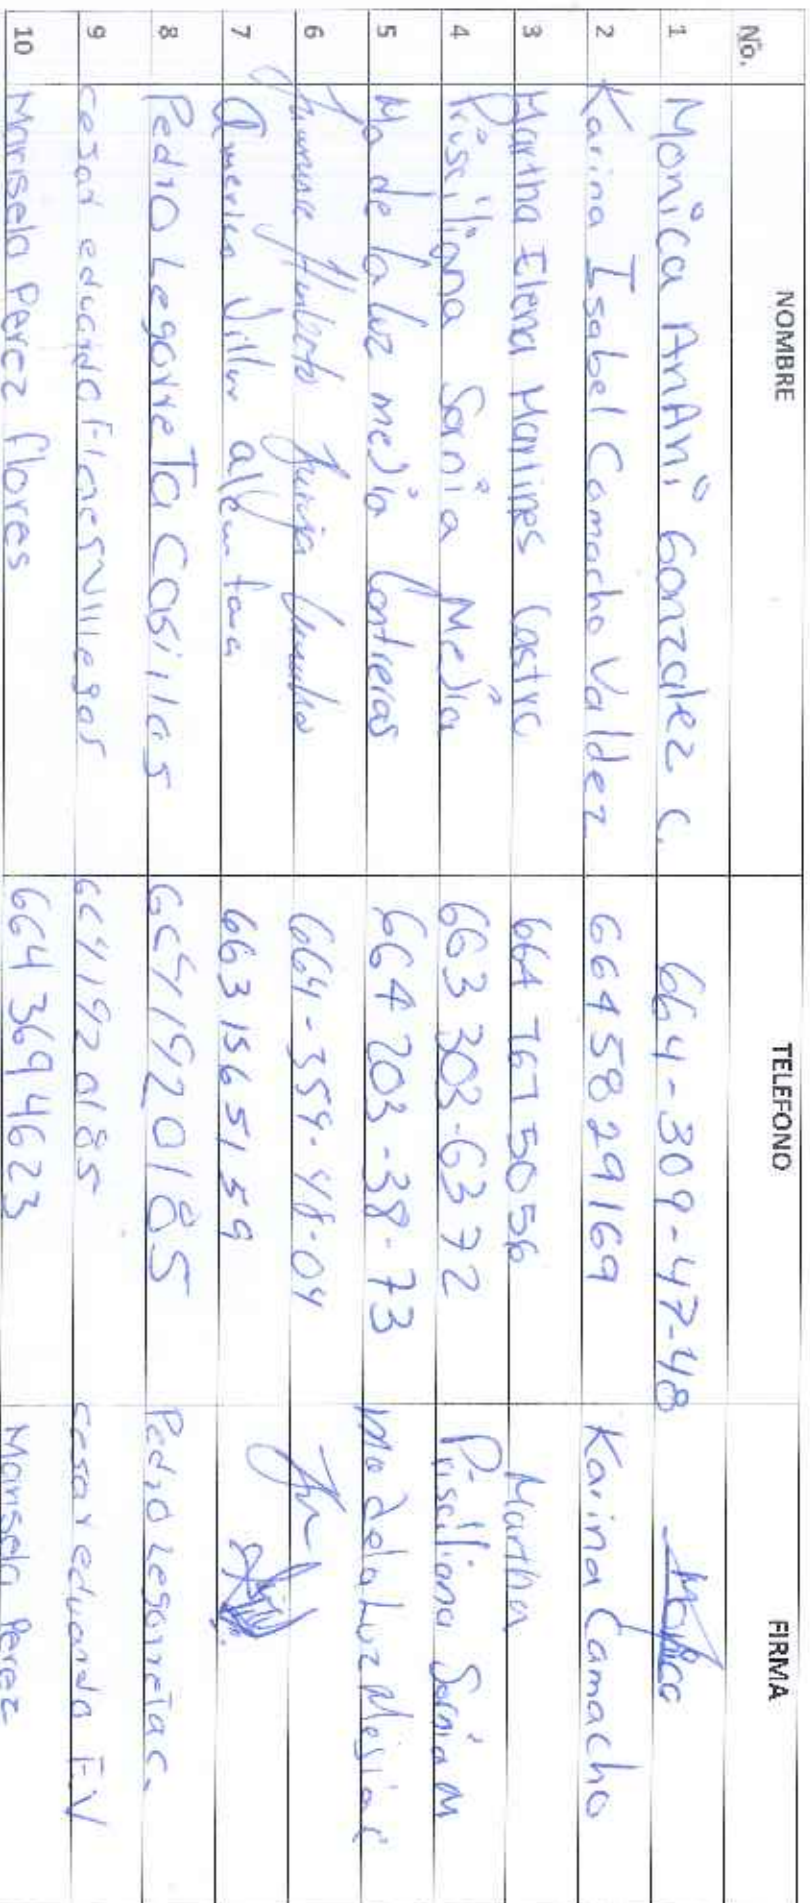 No. NOMBRE TELEFONO FIRMA
1 Monica AnAni Gonzalez C. 664-309-47-48 Monica
2 Karina Isabel Camacho Valdez 664 58 29169 Karina Camacho
3 Martha Elena Martines Castro 664 767 5056 Martha
4 Prisciliana Sarnia Mejia 663 303-6372 Prisciliana Sarnia M
5 Ma de la luz mejia Contreras 664 203-38-73 Ma de la Luz Mejia C
6 Humberto 664-359-48-04
7 America Villa 663 1565159
8 Pedro Legorreta Casillas 6641920185 Pedro Legorreta C.
9 cesar eduardo Villegas 6641920185 cesar eduardo F.V
10 Marisela Perez flores 664 3694623 Marisela Perez